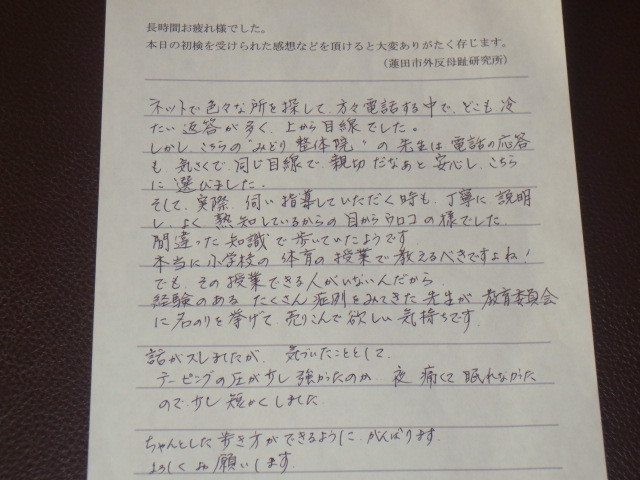 長時間お疲れ様でした。
本日の初検を受けられた感想などを頂けると大変ありがたく存じます。
（蓮田市外反母趾研究所）
ネットで色々な所を探して、方々電話する中で、どこも冷
たい返答が多く、上から目線でした。
しかし、こちらの"みどり整体院"の先生は電話の応答
も、気さくで同じ目線で、親切だなあと安心し、こちら
に選びました。
そして、実際、伺い指導していただく時も、丁寧に説明
し、よく熟知しているからの目からウロコの様でした。
間違った知識で歩いていたようです
本当に小学校の体育の授業で教えるべきですよね！
でも、その授業できる人がいないんだから、
経験のあるたくさん症例をみてきた先生が教育委員会
に名のりを挙げて売りこんで欲しい気持ちです。
話がズレましたが、気づいたこととして、
テーピングの圧が少し強かったのか、夜痛くて眠れなかった
ので少し短かくしました
ちゃんとした歩き方ができるように、がんばります。
よろしくお願いします。